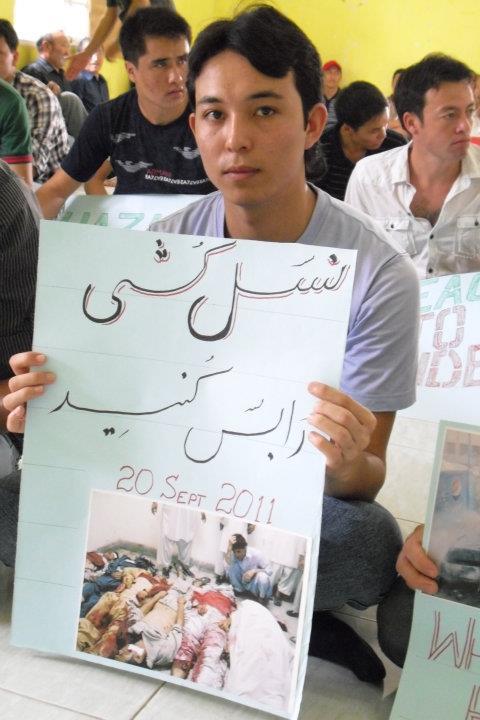 نَسل کُشی
را بَس کُنِید
20 SEPT 2011
HAZ
EAC
TO
WH